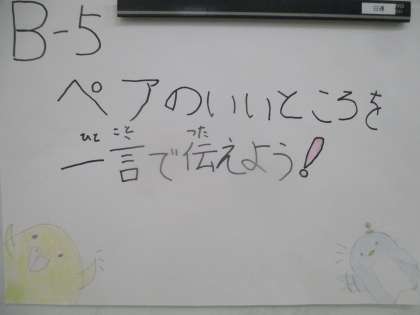 B-5
ペアのいいところを
ひと こと つた
一言で伝えよう!